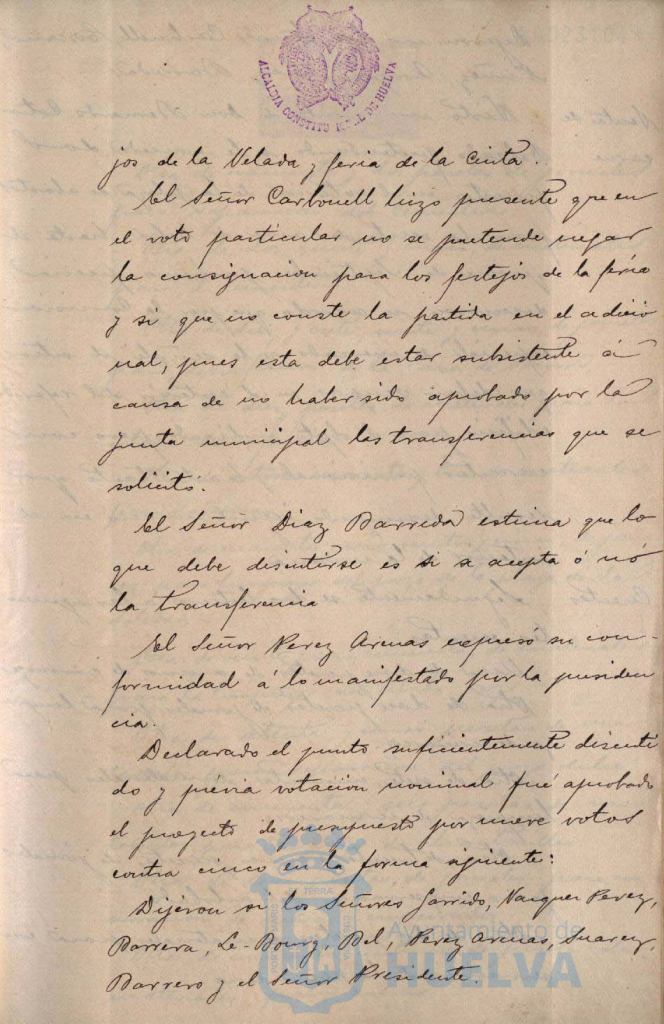 ALCALDIA CONSTITU L DE HUELVA
jos de la Velada y feria de la Cinta.
El Señor Carbonell hizo presente que en
el voto particular no se pretende negar
la consignacion para los festejos de la feria
y si que no conste la partida en el adicio
nal, pues esta debe estar subsistente á
causa de no haber sido aprobado por la
Junta municipal las transferencias que se
solicitó.
El Señor Diaz Barreda estima que lo
que debe discutirse es si se acepta ó nó
la transferencia
El Señor Perez Armas expresó su con-
formidad á lo manifestado por la presiden
cia.
Declarado el punto suficientemente discuti
do y prévia votación nominal fué aprobado
el proyecto de presupuesto por nueve votos
contra cinco en la forma siguiente:
Dijeron si los Señores Garrido, Vazquez Perez,
Barrera, Le-Bourg, Bel, Perez Armas, Suarez,
Barrero y el Señor Presidente.
Ayuntamiento de
HUELVA